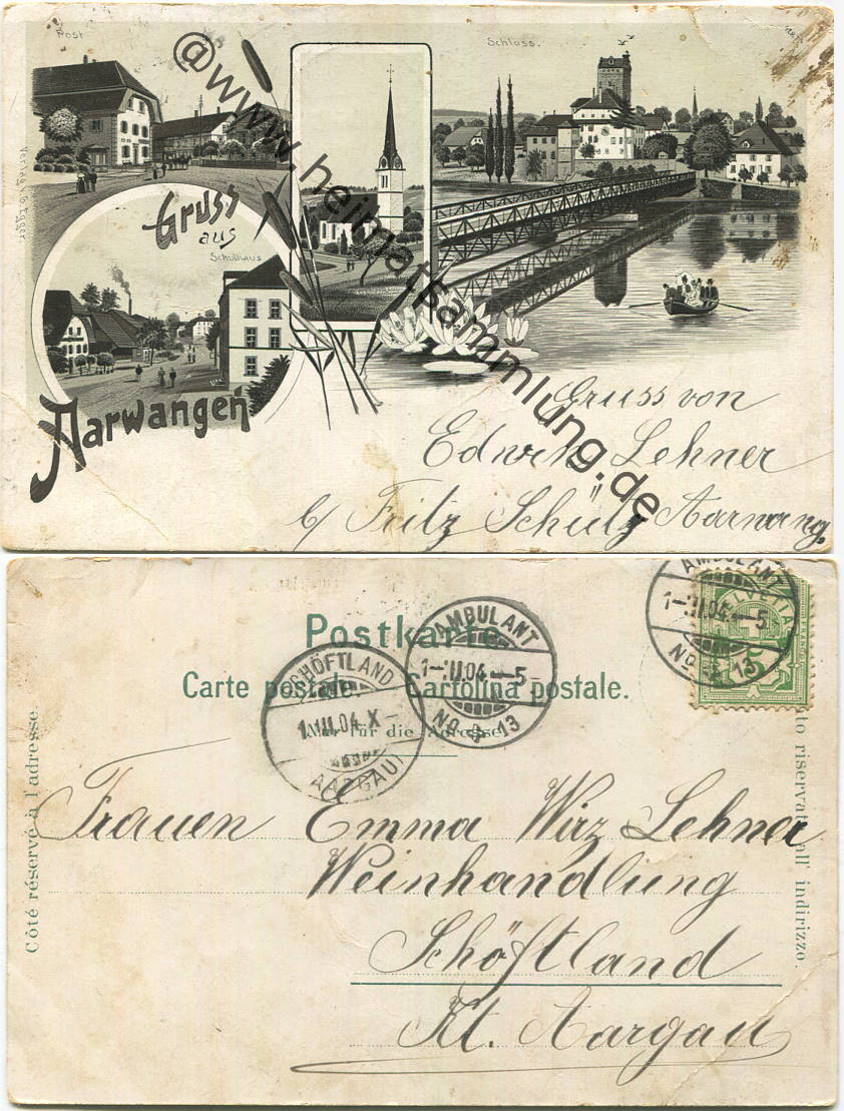 Post
Schloss.
Verlag G. Egger
Gruss
aus
Schulhaus
Aarwangen
@www.heimatsammlung.de
Gruss von
Edwin Lehner
b/ Fritz Schütz Aarwang.
Postkarte.
Carte postale. Cartolina postale.
Nur für die Adresse.
AMBULANT
1-III.04.-5
No 13
HELVETIA
5
AMBULANT
1-III.04.-5-
No 13
SCHÖFTLAND
1.III.04.X-
(AARGAU)
Côté réservé à l'adresse.
Lato riservato all' indirizzo.
Frauen Emma Wirz Lehner
Weinhandlung
Schöftland
Kt. Aargau